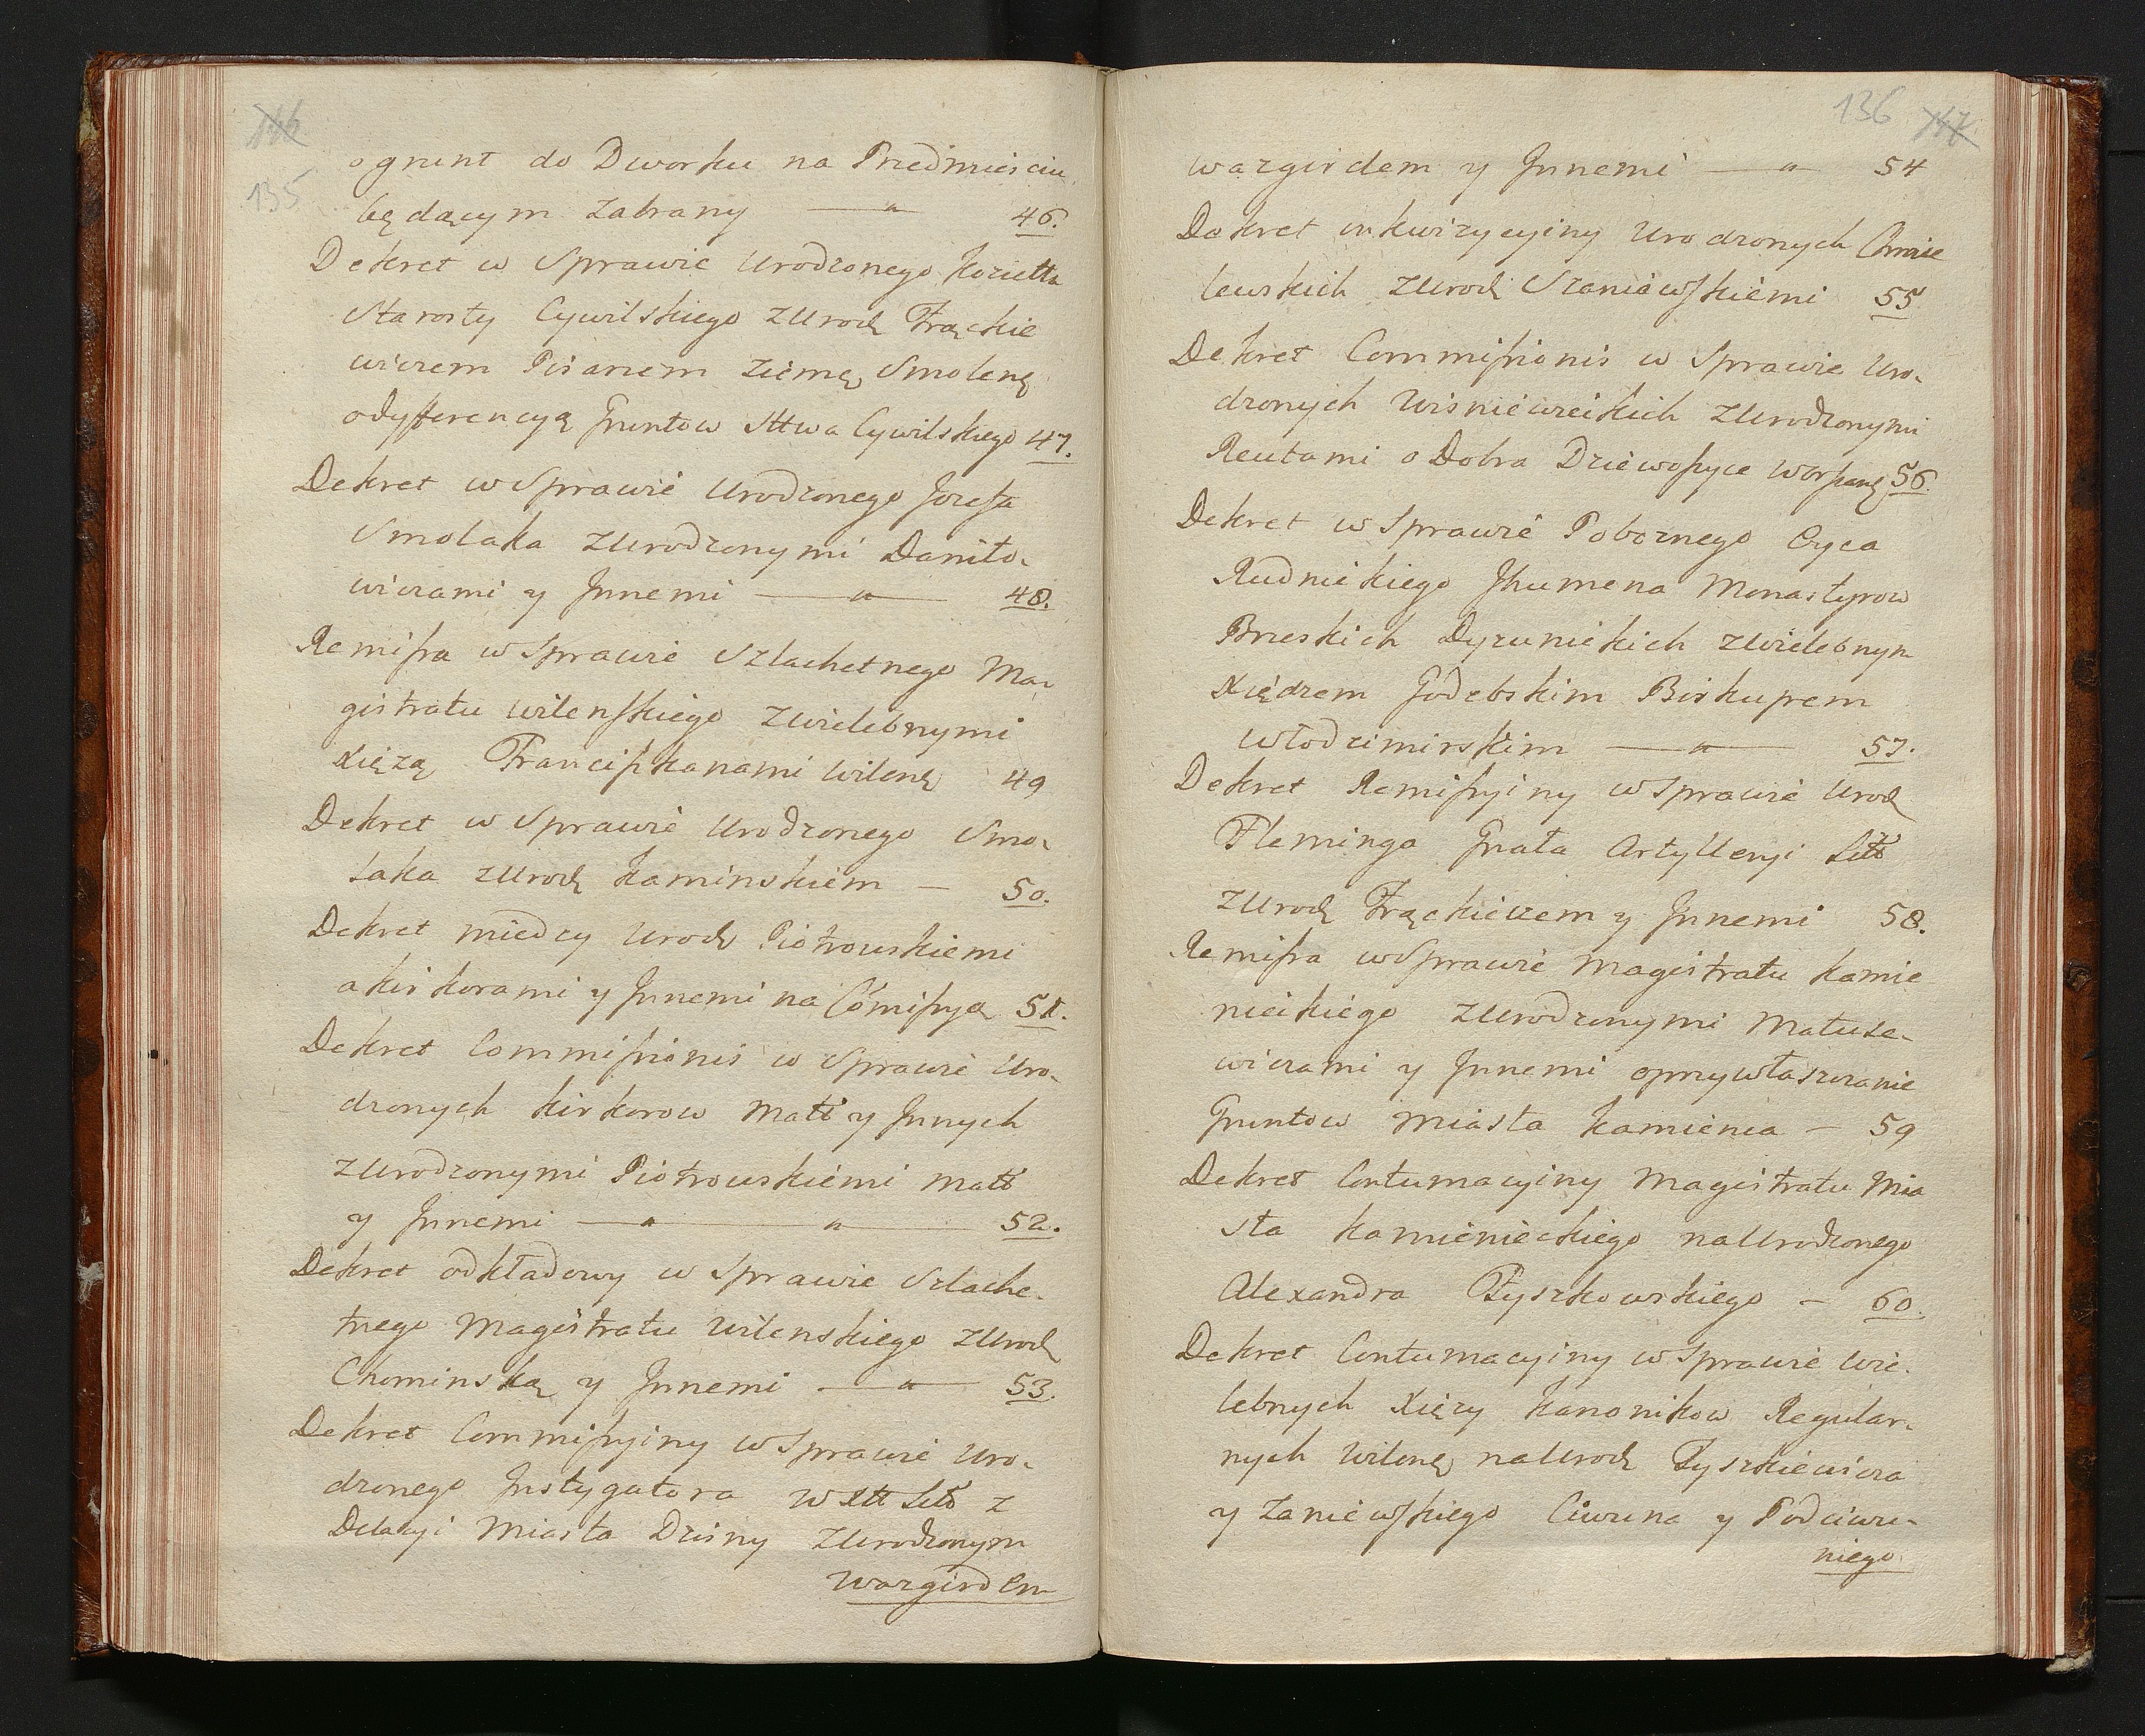 146
135
o grunt do Dworku na Przedmiesciu
będącym zabrany — " — 46.
Dekret w Sprawie Urodzonego Koziełła
Starosty Cywilskiego z Urodz Frąckie
wiczem Pisarzem Ziemą Smoleną
o dyfferencyą Gruntow Sttwa Cywilskiego 47.
Dekret w Sprawie Urodzonego Jozefa
Smolaka z Urodzonymi Daniło-
wiczami y Jnnemi — " — 48.
Remissa w Sprawie Szlachetnego Ma-
gistratu wilenskiego z Wielebnymi
Xiężą Franciszkanami Wileną 49
Dekret w Sprawie Urodzonego Smo-
laka z Urodz Kaminskiem — 50.
Dekret miedzy Urodz Piotrowskiemi
a Kirkorami y Jnnemi na Commissyą 51.
Dekret Commissionis w Sprawie Uro-
dzonych Kirkorow Małż y Jnnych
z Urodzonymi Piotrowskiemi Małż
y Jnnemi — " — " — 52.
Dekret odkładowy w Sprawie Szlache-
tnego Magistratu Wilenskiego z Urodz
Chominską y Jnnemi — " — 53.
Dekret Commissyiny w Sprawie Uro-
dzonego Jnstygatora W X Litt Litt z
Delacyi Miasta Dzisny z Urodzonym
Wazgirdem
136 147
wazgirdem y Jnnemi — " — 54
Dekret inkwizycyiny Urodzonych Chmie
lewskich z Urodz Szaniawskiemi 55
Dekret Commissionis w Sprawie Uro-
dzonych Wisniewskich z Urodzonymi
Reutami o Dobra Dziewoszyce 56.
Dekret w Sprawie Pobożnego Oyca
Rudnickiego Jhumena Monastyrow
Brzeskich Dyzunickich z Wielebnym
Xiędzem Godebskim Biskupem
Włodzimirskim — " — 57.
Dekret Remissyiny w Sprawie Urodz
Fleminga Gnała Artylleryi Litt
z Urodz Frąckiewiczem y Jnnemi 58.
Remissa w Sprawie Magistratu Kamie
nieckiego z Urodzonymi Matusze-
wiczami y Jnnemi o przywłaszczenie
Gruntow Miasta Kamienca — 59
Dekret Contumacyiny Magistratu Mia
sta Kamienieckiego na Urodzonego
Alexandra Pyszkowskiego — 60.
Dekret Contumacyiny w Sprawie Wie-
lebnych Xięży Kanonikow Regular-
nych Wileną na Urodz Tyszkiewicza
y Zaniewskiego Ciwuna y Podciwu-
niego